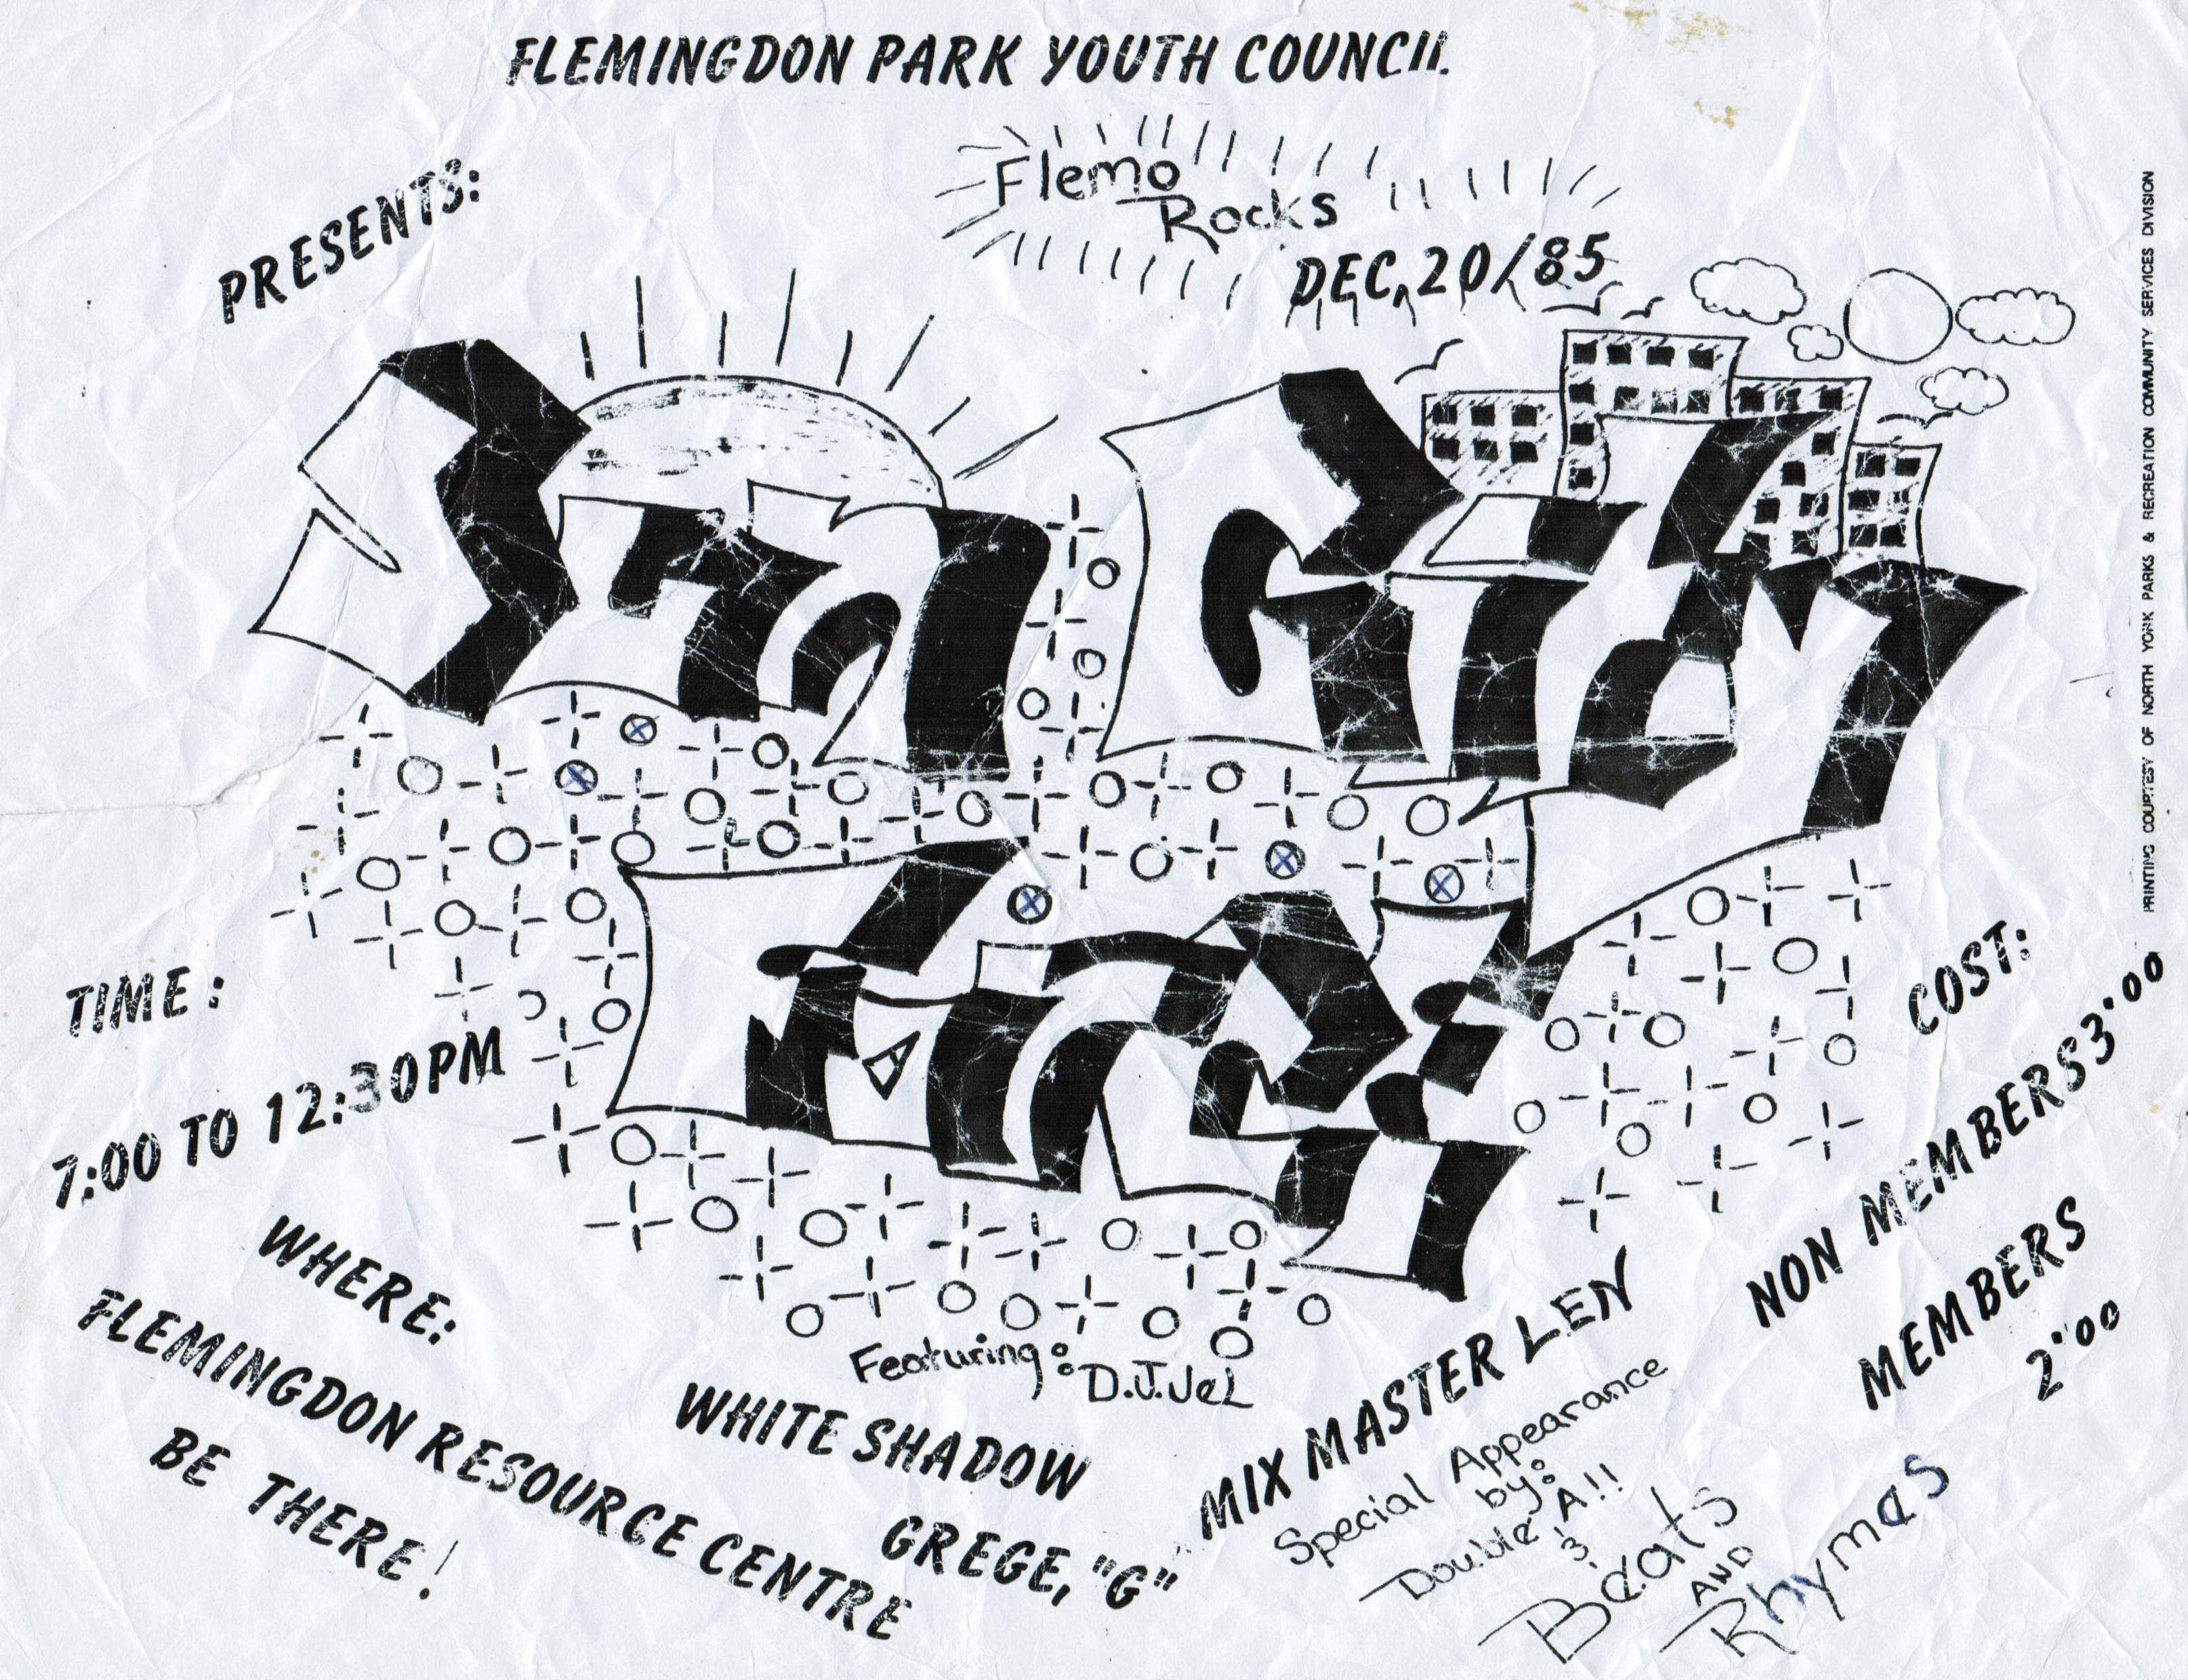 FLEMINGDON PARK YOUTH COUNCIL
PRESENTS:
Flemo
Rocks
DEC, 20/85
TIME:
7:00 TO 12:30PM
WHERE:
FLEMINGDON RESOURCE CENTRE
BE THERE!
Featuring: D.J.Jel
WHITE SHADOW
GREGE, "G"
MIX MASTER LEN
Special Appearance
by:
Double A!!
&
Beats
AND
Rhymes
COST:
NON MEMBERS 3.00
MEMBERS
2.00
PRINTING COURTESY OF NORTH YORK PARKS & RECREATION COMMUNITY SERVICES DIVISION